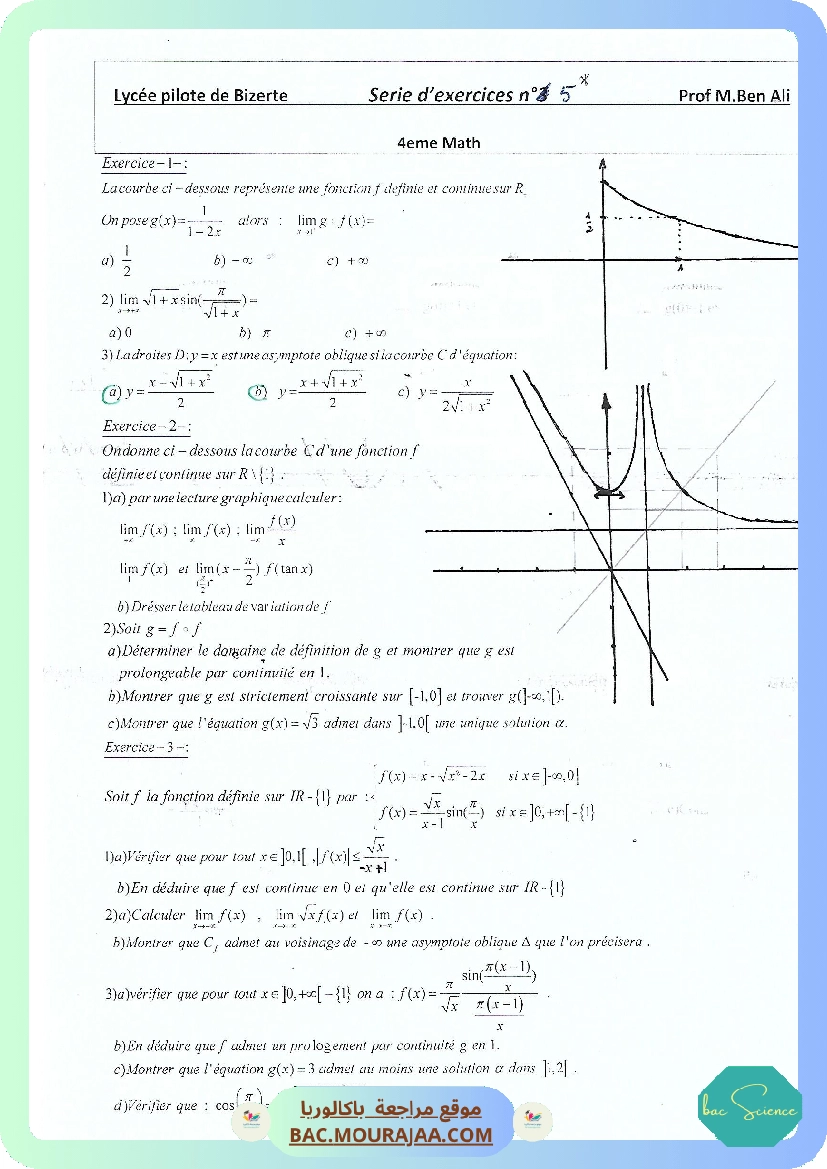 Lycée pilote de Bizerte Serie d'exercices n° 5 * Prof M.Ben Ali
4eme Math
Exercice-1-:
La courbe ci-dessous représente une fonction f definie et continue sur R
On pose g(x)= 1/(1-2x) alors : lim x→1 g∘f(x)=
a) 1/2 b) -∞ c) +∞
2) lim √1+x sin(π/√1+x)=
a) 0 b) π c) +∞
3) La droites D: y=x est une asymptote oblique si la courbe C d'équation:
a) y= (x-√1+x²)/2 b) y= (x+√1+x²)/2 c) y= x/2√1+x²
1/2
1
Exercice-2-:
On donne ci-dessous la courbe C d'une fonction f
définie et continue sur R\{1}
1)a) par une lecture graphique calculer:
lim f(x) ; lim f(x) ; lim f(x)/x
lim 1 f(x) et lim (x-π/2) f(tan x)
b) Drésser le tableau de variation de f
2)Soit g = f ∘ f
a)Déterminer le domaine de définition de g et montrer que g est
prolongeable par continuité en 1.
b)Montrer que g est strictement croissante sur [-1,0] et trouver g(]-∞,1[).
c)Montrer que l'équation g(x)=√3 admet dans ]-1,0[ une unique solution α.
Exercice-3-:
f(x)= x-√x²-2x si x∈]-∞,0]
Soit f la fonction définie sur IR-{1} par :
f(x)= √x/(x-1) sin(π/x) si x∈]0,+∞[-{1}
1)a)Vérifier que pour tout x∈]0,1[ ,|f(x)|≤ √x/(-x+1) .
b)En déduire que f est continue en 0 et qu'elle est continue sur IR-{1}
2)a)Calculer lim f(x) , lim √x f(x) et lim f(x) .
b)Montrer que Cf admet au voisinage de -∞ une asymptote oblique Δ que l'on précisera .
3)a)vérifier que pour tout x∈]0,+∞[-{1} on a : f(x)= π/√x sin(π(x-1)/x)/(π(x-1)/x) .
b)En déduire que f admet un prologement par continuité g en 1.
c)Montrer que l'équation g(x)=3 admet au moins une solution α dans ]1,2[ .
d)Vérifier que : cos(π
موقع مراجعة باكالوريا
BAC.MOURAJAA.COM
bac Science